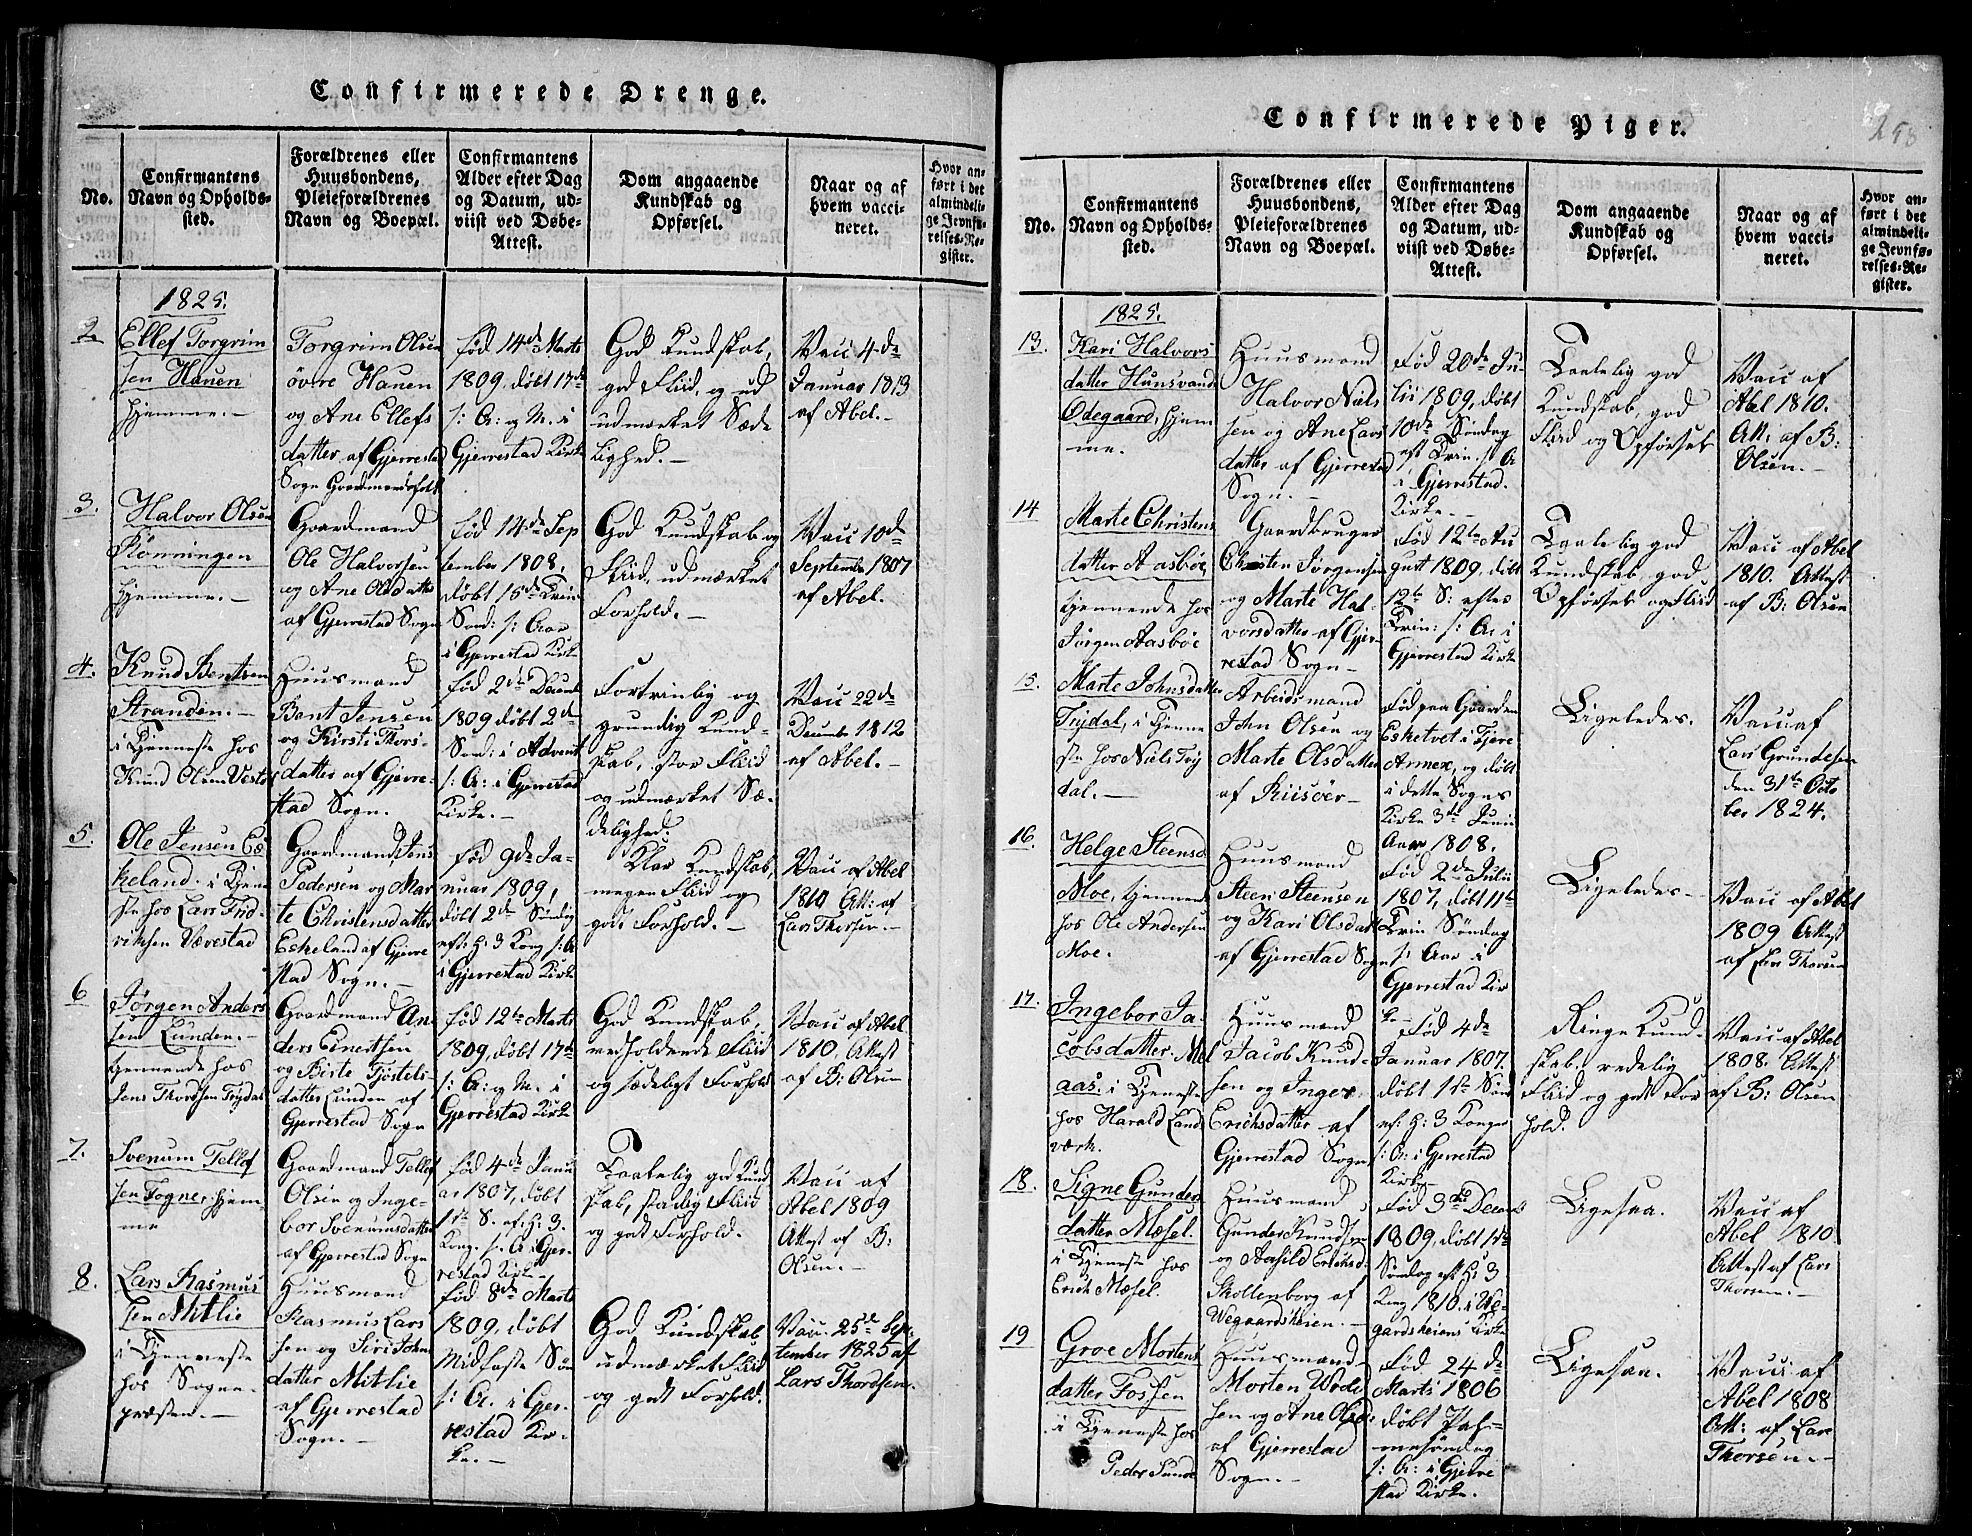 Confirmerede Drenge.
No.
Confirmantens
Navn og Opholds-
sted.
Forældrenes eller
Huusbondens,
Pleieforældrenes
Navn og Boepæl.
Confirmantens
Alder efter Dag
og Datum, ud-
viist ved Døbe-
Attest.
Dom angaaende
Kundskab og
Opførsel.
Naar og af
hvem vacci-
neret.
Hvor an-
ført i det
almindeli-
ge Jevnfø-
relses-Re-
gister.
1825.
2.
Ellef Torgrim
sen Hanen
hjemme.-
Torgrim Olsen
övre Hanen
og Ane Ellefs
datter af Gjerrestad
Sogn Gaardmandsfolk
Fød 14de Marts
1809, døbt 17de
s: A: og M. i
Gjerrestad Kirke
God Kundskab,
god Fliid, og ud
udmærket Sæde
lighed.-
Vacc 4de
Januar 1813
af Abel.-
3.
Halvor Olsen
Rönningen
hjemme.-
Gaardmand
Ole Halvorsen
og Ane Olsdatter
af Gjerrestad Sogn
Fød 14de Sep
tember 1808,
døbt 15de Trin
Sønd: s: Aar
i Gjerrestad Kirke
God Kundskab og
Fliid, udmærket
Forhold.-
Vacc 10de
September 1807
af Abel.
4.
Knud Bentsen
Stranden.-
i Tjeneste hos
Knud Olsen Vestøl
Huusmand
Bent Jensen
og Kirsti Thors-
datter af Gjerre-
stad Sogn.
Fød 2de Decemb
1809 døbt 2de
Sønd: i Advent
s: A: i Gjerrestad
Kirke.-
Fortrinlig og
grundig Kund-
skab, stor Fliid
og udmærket Sæ-
delighed.
Vacc 22de
Decembr 1812
af Abel.-
5.
Ole Jensen Es
keland. i Tjene
ste hos Lars Frid-
riksen Værestad
Gaardmand Jens
Pedersen og Mar
te Christensdatter
Eskeland af Gjerre
stad Sogn.-
Fød 9de Ja-
nuar 1809,
døbt 2de Søndag
eft: H: 3 Kong s: A
i Gjerrestad Kirke
Klar Kundskab,
megen Fliid og
godt Forhold.-
Vacc af Abel
1810 Att: af
Lars Thorsen.-
6
Jørgen Anders
sen Lunden.-
tjenende hos
Jens Thordsen Trydal
Gaardmand An
ders Einertsen
og Birte Tjöstels-
datter Lunden af
Gjerrestad Sogn
Fød 12te Marts
1809, døbt 17de
s: A: og M. i
Gjerrestad Kirke
God Kundskab,
vedholdende Fliid
og sædeligt Forhold
Vacc af Abel
1810, Attest
af B: Olsen
7.
Svenum Tellef
sen Fogne, hjem-
me
Gaardmand Tellef
Olsen og Inge-
bor Svenumsdatter
af Gjerrestad Sogn
Fød 4de Janu
ar 1807, døbt
1ste S. ef: H: 3.
Kong. s: A i Gjer-
restad Kirke-
Taalelig god Kund
skab, stadig Fliid
og godt Forhold.
Vacc af
Abel 1809
Attest af B:
Olsen.-
8.
Lars Rasmus
sen Mitlie
i Tjenneste
hos Sogne-
præsten.-
Huusmand
Rasmus Lars
sen og Siri John
datter Mitlie
af Gjerrestad
Sogn.-
Fød 8de Marts
1809, døbt
Midfaste Søn
s: A. i Gjer-
restad Kir-
ke.-
God Kundskab
udmærket Fliid
og godt Forhold.
Vacc. 25de Sep-
tember 1825 af
Lars Thordsen.
Confirmerede Piger.
258
No.
Confirmantens
Navn og Opholds-
sted.
Forældrenes eller
Huusbondens,
Pleieforældrenes
Navn og Boepæl.
Confirmantens
Alder efter Dag
og Datum, ud-
viist ved Døbe-
Attest.
Dom angaaende
Kundskab og
Opførsel.
Naar og af
hvem vacci-
neret.
Hvor an-
ført i det
almindeli-
ge Jevnfø-
relses-Re-
gister.
1825.
13.
Kari Halvors
datter Hunsvand
Ødegaard, hjem
me.
Huusmand
Halvor Niels
sen og Ane Lars
datter af Gjerrestad
Sogn.-
Fød 20de Ju-
lii 1809, døbt
10de Søndag
eft Trin. s: A
i Gjerrestad
Kirke.-
Taalelig god
Kundskab, god
Fliid og Opførsel
Vacc af
Abel 1810.
Att: af B:
Olsen.-
14
Marte Christens
datter Aasböe,
tjennende hos
Jørgen Aasböe
Gaardbruger
Christen Jorgensen
og Marte Hal-
vorsdatter af Gjer-
restad Sogn-
Fød 12te Au
gust 1809, døbt
12te S: efter
Trin: s: A: i
Gjerrestad Kirke
Taalelig god
Kundskab, god
Opførsel og Fliid
Vacc af Abel
1810. Attest
af B: Olsen
15.
Marte Johnsdatter
Trydal, i Tjenne
ste hos Niels Try
dal.-
Arbeidsmand
John Olsen og
Marte Olsdatter
af Riisöer-
Fød paa Gaarden
Eskelvet i Fjere
Annex, og døbt
i dette Sogns
Kirke 3de Junii
Aar 1808.
Ligeledes.
Vacc af
Lars Grundesen
den 31te Octo
ber 1824.
16.
Helge Steensd
Moe, tjennende
hos Ole Andersen
Moe.
Huusmand
Steen Steensen
og Kari Olsdatt
af Gjerrestad Sogn
Fød 2de Julii
1807, døbt 11te
Trin Søndag
s: Aar i
Gjerrestad Kir
ke-
Ligeledes-
Vacc af Abel
1809 Attest
af Lars Thorsen
17.
Ingebor Ja-
cobsdatter Mel
aas. i Tjeneste
hos Harald Land
værk.
Huusmand
Jacob Knud-
sen og Inger
Erichsdatter af
Gjerrestad Sogn
Fød 4de
Januar 1807.
døbt 1ste Søn
ef: H: 3 Konger
s: A: i Gjerrestad
Kirke
Ringe Kund-
skab. redelig
Fliid og godt For
hold.
Vacc af Abel
1808. Attest
af B: Olsen
18.
Signe Gunder
datter Mæsel.
i Tjeneste hos
Erich Mæsel.
Huusmand
Gunder Knudsen
og Aashild Erichsd.
Skollenborg af
Wegaardsheien.-
Fød 3de Decemb
1809, døbt 1ste
Søndag eft H: 3
Kong 1810. i We-
gardsheiens Kirke
Ligesaa.
Vacc af
Abel 1810.
Attest af Lars
Thorsen.-
19
Groe Mortens
datter Fossen
i Tjeneste hos
Peder Sunde
Huusmand
Morten Wroli
sen og Ane Olsd:
af Gjerrestad
Sogn.-
Fød 24de
Marts 1806
døbt Pal-
mesøndag
s: A: i Gjerre
stad Kirke.
Ligesaa.
Vacc: af
Abel 1808
Att: af Lars
Thorsen.-